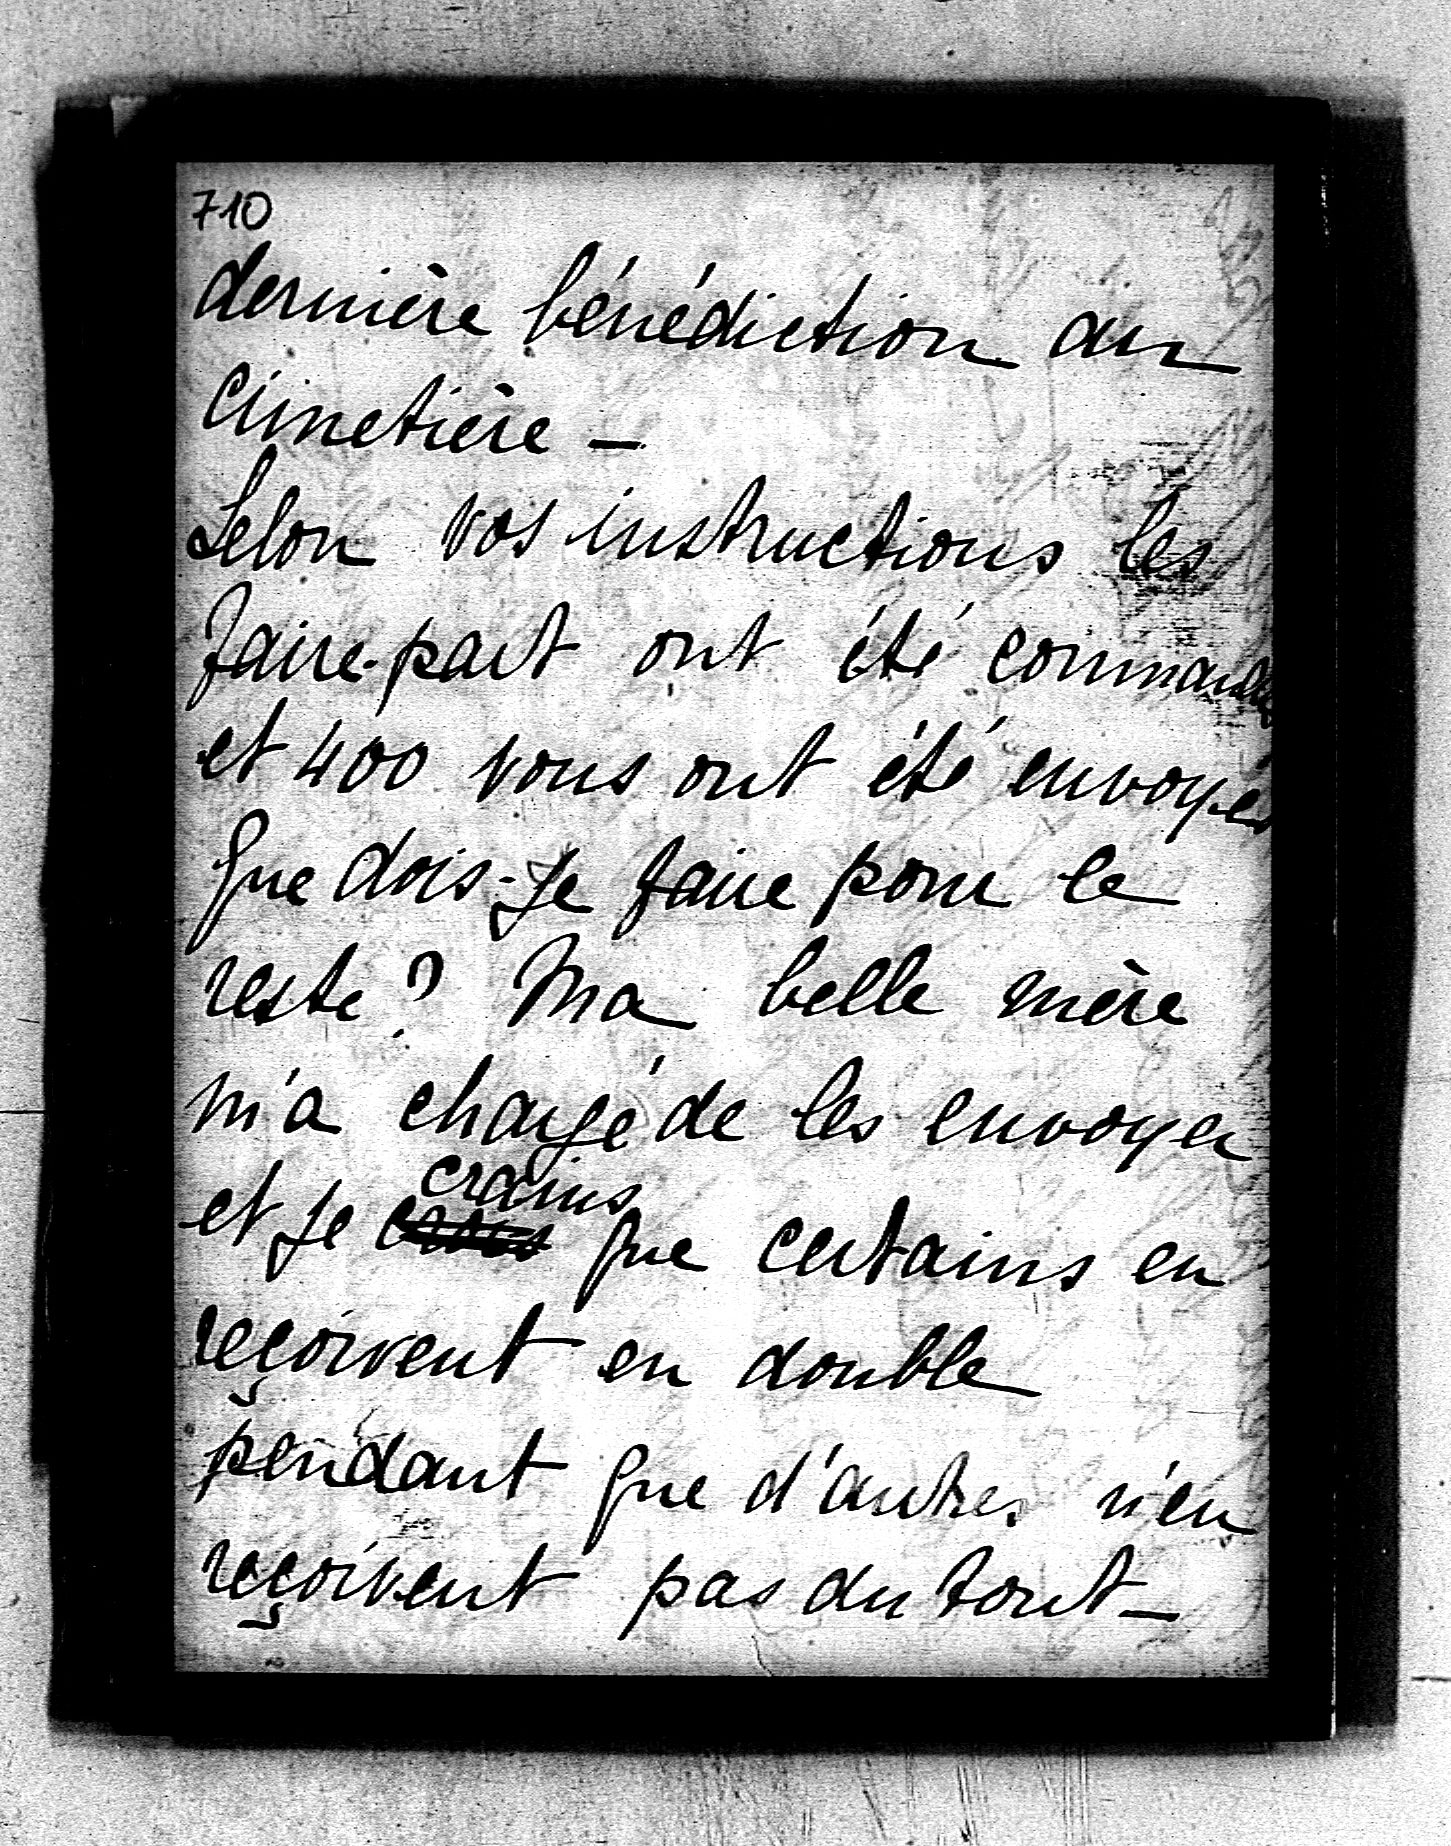 710
dernière bénédiction au
cimetière —
Selon vos instructions les
faire-part ont été commandés
et 400 vous ont été envoyés
Que dois-je faire pour le
reste ? Ma belle mère
m'a chargé de les envoyer
crains
et je que certains en
reçoivent en double
pendant que d'autres n'en
reçoivent pas du tout —